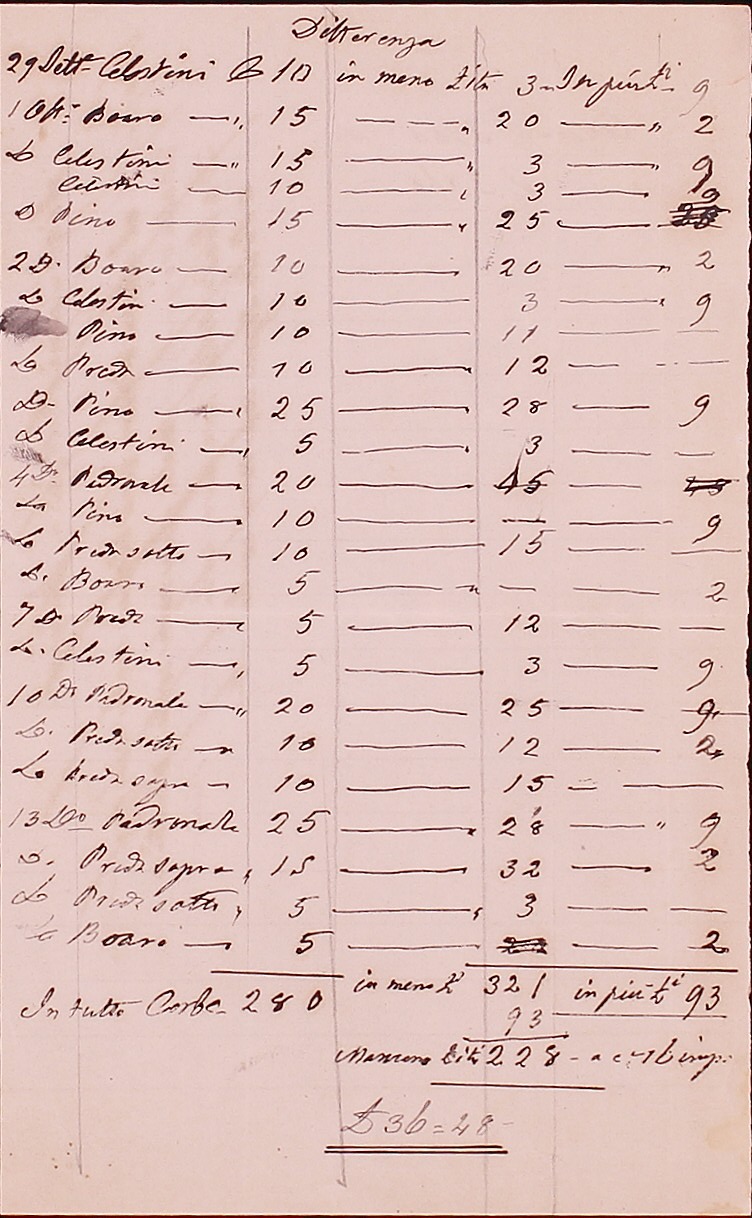 Differenza
29 Dett. Celestini C 10 in meno Lit 3 - In più Li 9
1 Ott. Boaro — " 15 — " 20 — " 2
D Celestini — " 15 — " 3 — " 9
Celestini — 10 — 3 — 9
D Pino — 15 — " 25 —
2 D. Boaro — 10 — 20 — " 2
D Celestin — 10 — 3 — " 9
Pino — 10 — 11 —
D Preda — 10 — 12 — —
D. Pino — " 25 — 28 — 9
D Celestini — " 5 — 3 — —
4 D. Padronale — 20 — 45 —
D Pino — 10 — — — 9
D Preda sotto — 10 — 15 — —
D. Boaro — 5 — " — — 2
7 D. Preda — 5 — 12 — —
D. Celestini — " 5 — 3 — 9
10 D. Padronale — " 20 — 25 — 9
D. Preda sotto — " 10 — 12 — 2
D Preda sopra — 10 — 15 — —
13 Do Padronale 25 — " 28 — " 9
D. Preda sopra " 15 — 32 — 2
D Preda sotto " 5 — " 3 — —
D Boaro — 5 — — 2
In tutto Corbe 280 in meno Li 321 in più Li 93
93
Mancano Lit 228 - a
£ 36=48